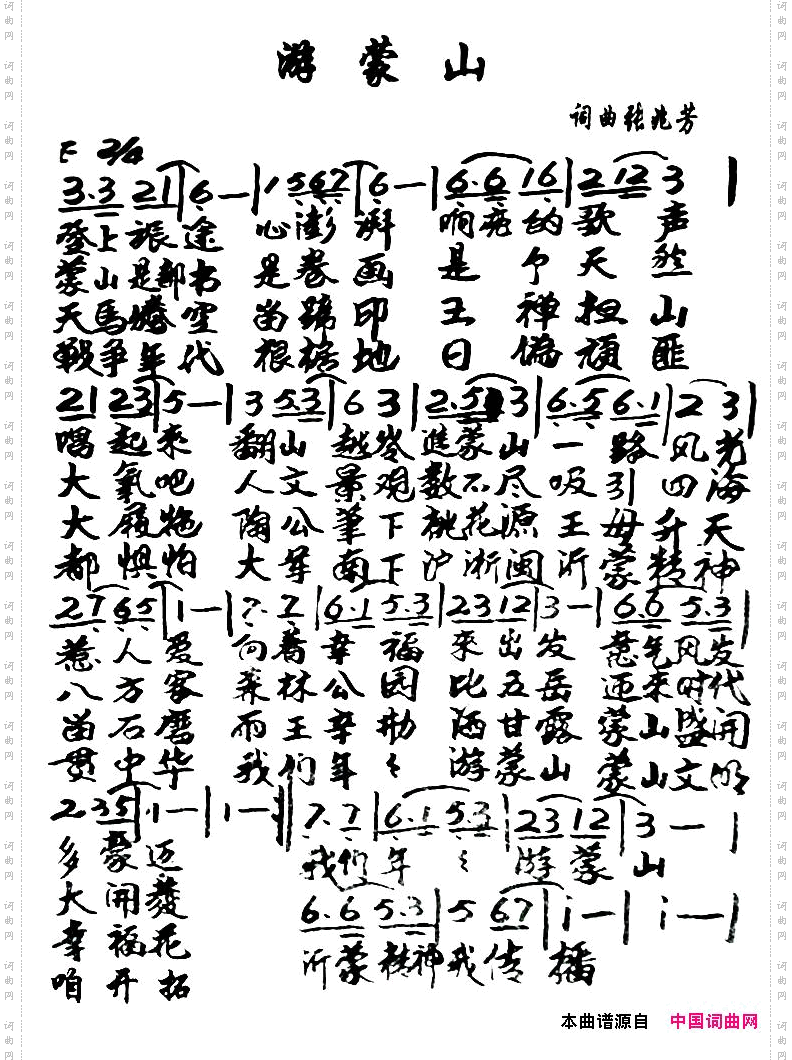 游蒙山
词曲张兆芳
F 2/4
3.3 21 | 6 — | 1 567 | 6 — | 6.6 16 | 2 12 3 |
登上旅途 心澎湃 响亮的歌声
蒙山是部书 是卷画 是个天然
天馬 空 留蹄印 王禅担山
戰争年代 根据地 日偽顽匪
21 23 | 5 — | 3 5.3 | 6 3 | 2.5 3 | 6.5 6.1 | 2 3 |
唱起来 翻山越岭進蒙山一路风光
大氧吧 人文景观数不尽吸引四海
大 陶公筆下桃花源王母升天
都惧怕 大軍南下沪浙闽沂蒙精神
27 65 | 1 — | 7.7 | 6.1 5.3 | 23 12 | 3 — | 6.6 5.3
惹人爱 向着幸福来出发意气风发
八方客 森林公园比五岳迎来时代
留石磨 雨王辛勤洒甘露蒙山盛开
贯中华 我们年年游蒙山蒙山文明
2 35 | 1 — | 1 — 7.7 | 6.1 5.3 | 23 12 | 3 — |
多豪迈 我们年年游蒙山
大開發 6.6 5.3 | 5 67 | i — | i — |
幸福花 沂蒙精神我传播
咱开拓
本曲谱源自 中国词曲网
词曲网